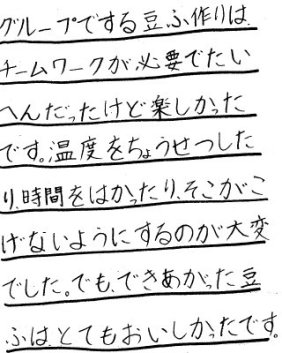 グループでする豆ふ作りは、
チームワークが必要でたい
へんだったけど楽しかった
です。温度をちょうせつした
り、時間をはかったり、そこがこ
げないようにするのが大変
でした。でも、できあがった豆
ふは、とてもおいしかったです。